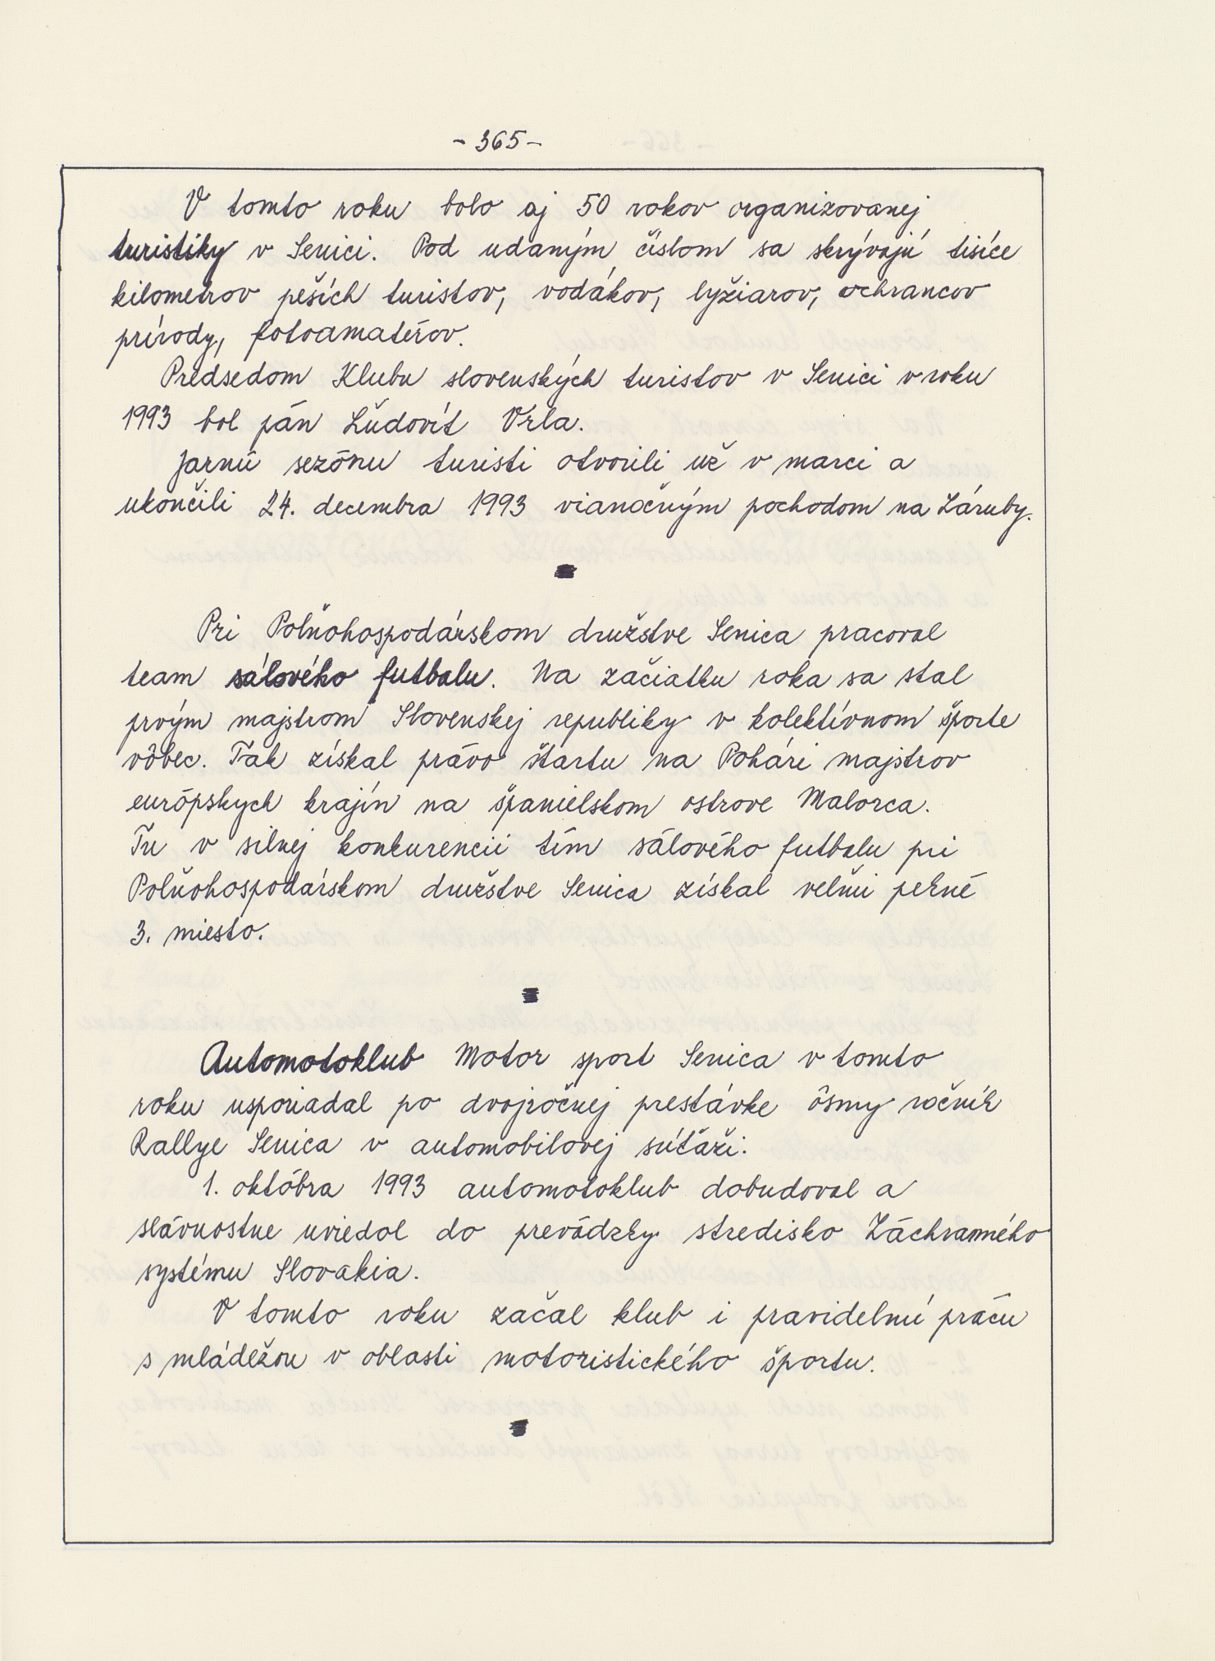 - 365 -
V tomto roku bolo aj 50 rokov organizovanej
turistiky v Senici. Pod udaným číslom sa skrývajú tisíce
kilometrov peších turistov, vodákov, lyžiarov, ochrancov
prírody, fotoamatérov.
Predsedom Klubu slovenských turistov v Senici v roku
1993 bol pán Ľudovít Vrla.
Jarnú sezónu turisti otvorili už v marci a
ukončili 24. decembra 1993 vianočným pochodom na Záruby.
Pri Poľnohospodárskom družstve Senica pracoval
team sálového futbalu. Na začiatku roka sa stal
prvým majstrom Slovenskej republiky v kolektívnom športe
vôbec. Tak získal právo štartu na Pohári majstrov
európskych krajín na španielskom ostrove Malorca.
Tu v silnej konkurencii tím sálového futbalu pri
Poľnohospodárskom družstve Senica získal veľmi pekné
3. miesto.
Automotoklub Motor sport Senica v tomto
roku usporiadal po dvojročnej prestávke ôsmy ročník
Rallye Senica v automobilovej súťaži.
1. októbra 1993 automotoklub dobudoval a
slávnostne uviedol do prevádzky stredisko Záchranného
systému Slovakia.
V tomto roku začal klub i pravidelnú prácu
s mládežou v oblasti motoristického športu.